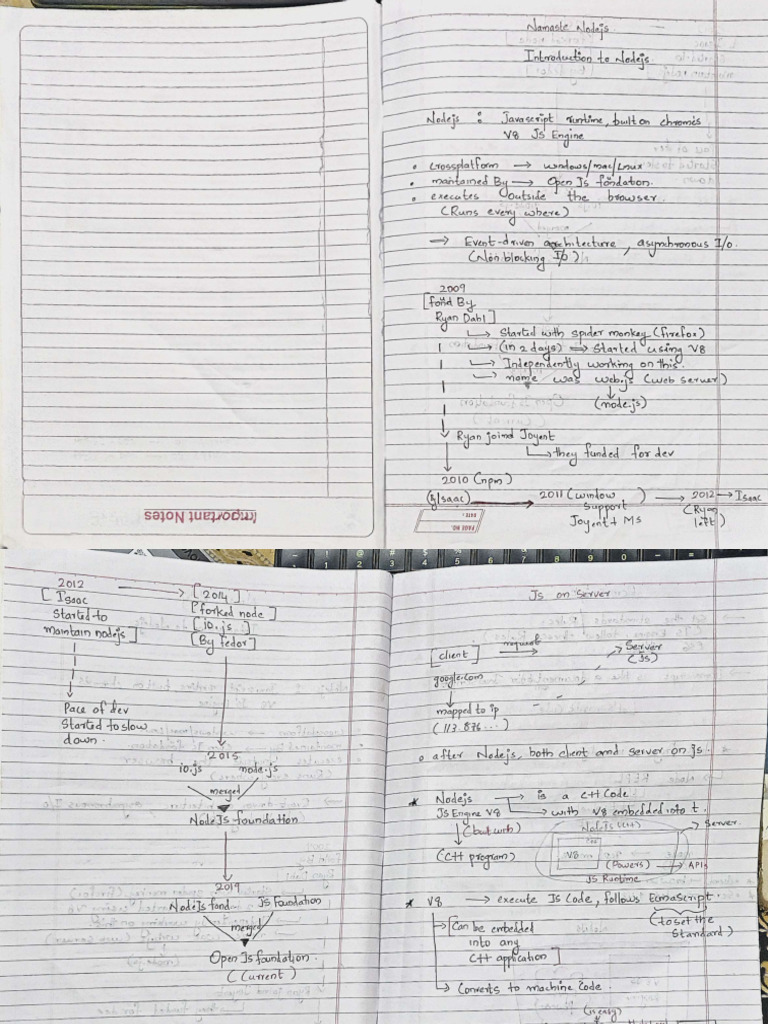 Namaste Nodejs
Introduction to Nodejs
Nodejs : Javascript runtime, built on chromes
V8 JS Engine
• crossplatform → windows/mac/Linux
• maintained By → Open Js fondation.
• executes outside the browser
(Runs every where)
→ Event-driven architecture, asynchronous I/o.
(Non blocking I/o)
2009
[fond By
Ryan Dahl]
→ Started with spider monkey (firefox)
→ (in 2 days) ⇒ Started using V8
→ Independently working on this.
→ name was web.js (web server)
↓
(node.js)
Ryan joind Joyent
→ they funded for dev
2010 (npm)
(By Isaac) → 2011 (window support Joyent + MS) → 2012 → Isaac
(Ryan left)
Important Notes
PAGE NO.
DATE:
2012 → [2014]
[Isaac
Started to
maintain nodejs]
[forked node]
[io.js]
[By fedor]
Pace of dev
Started to slow
down.
2015
io.js node.js
merged
NodeJs foundation
2019
NodeJs fond JS Foundation
merged
Open Js foundation.
(Current)
Js on Server
[client] request → Server
(JS)
google.com
↓
mapped to ip
(117.876...)
• after Nodejs, both client and server on js.
* Nodejs → is a C++ Code
→ with V8 embedded into t.
JS Engine V8
↓ (but with)
(C++ program)
Nodejs (C++)
→ Server.
V8
(Powers) → API
JS Runtime
* V8 → execute JS Code, follows Ecmascript.
(to set the
Standard)
→ [Can be embedded
into any
C++ application]
→ Converts to machine Code.
(is easy)